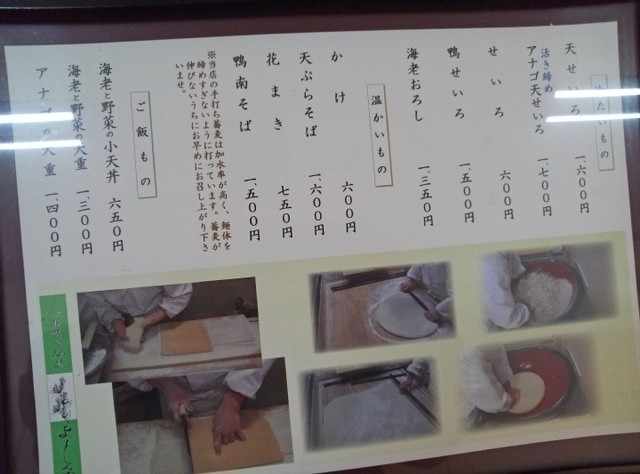 冷たいもの
天せいろ 一、六〇〇円
活き締め
アナゴ天せいろ 一、七〇〇円
せいろ 六〇〇円
鴨せいろ 一、五〇〇円
海老おろし 一、三五〇円
温かいもの
かけ 六〇〇円
天ぷらそば 一、六〇〇円
花まき 七五〇円
鴨南そば 一、五〇〇円
※当店の手打ち蕎麦は加水率が高く、麺体を
締めすぎないように打っています。蕎麦が
伸びないうちにお早めにお召し上がり下さ
いませ。
ご飯もの
海老と野菜の小天丼 六五〇円
海老と野菜の天重 一、三〇〇円
アナゴの天重 一、四〇〇円